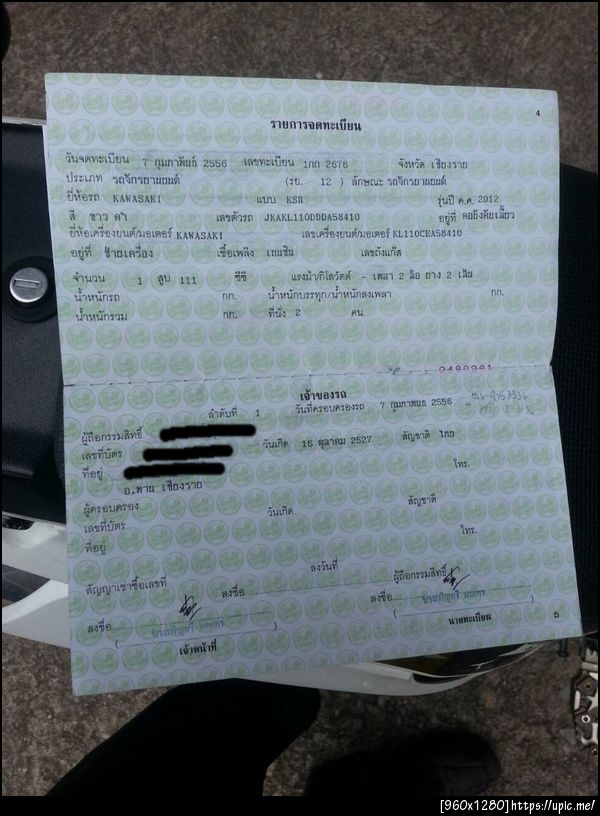 4
รายการจดทะเบียน
วันจดทะเบียน 7 กุมภาพันธ์ 2556 เลขทะเบียน 1กก 2676 จังหวัด เชียงราย
ประเภท รถจักรยานยนต์ (รย. 12 ) ลักษณะ รถจักรยานยนต์
ยี่ห้อรถ KAWASAKI แบบ KSR รุ่นปี ค.ศ. 2012
สี ขาว ดำ เลขตัวรถ JKAKL110DDDA58410 อยู่ที่ คอยึงคันเลี้ยว
ยี่ห้อเครื่องยนต์/มอเตอร์ KAWASAKI เลขเครื่องยนต์/มอเตอร์ KL110CEA58410
อยู่ที่ ซ้ายเครื่อง เชื้อเพลิง เบนซิน เลขถังแก๊ส
จำนวน 1 สูบ 111 ซีซี แรงม้า/กิโลวัตต์ - เพลา 2 ล้อ ยาง 2 เส้น
น้ำหนักรถ กก. น้ำหนักบรรทุก/น้ำหนักลงเพลา กก.
น้ำหนักรวม กก. ที่นั่ง 2 คน
เจ้าของรถ
ลำดับที่ 1 วันที่ครอบครองรถ 7 กุมภาพันธ์ 2556
ผู้ถือกรรมสิทธิ์
เลขที่บัตร วันเกิด 16 ตุลาคม 2527 สัญชาติ ไทย
ที่อยู่ โทร.
อ.พาน เชียงราย
ผู้ครอบครอง
เลขที่บัตร วันเกิด สัญชาติ
ที่อยู่ โทร.
สัญญาเช่าซื้อเลขที่ ลงวันที่
ลงชื่อ ผู้ถือกรรมสิทธิ์
ลงชื่อ ลงชื่อ
เจ้าหน้าที่ นายทะเบียน 5
[960x1280]https://upic.me/